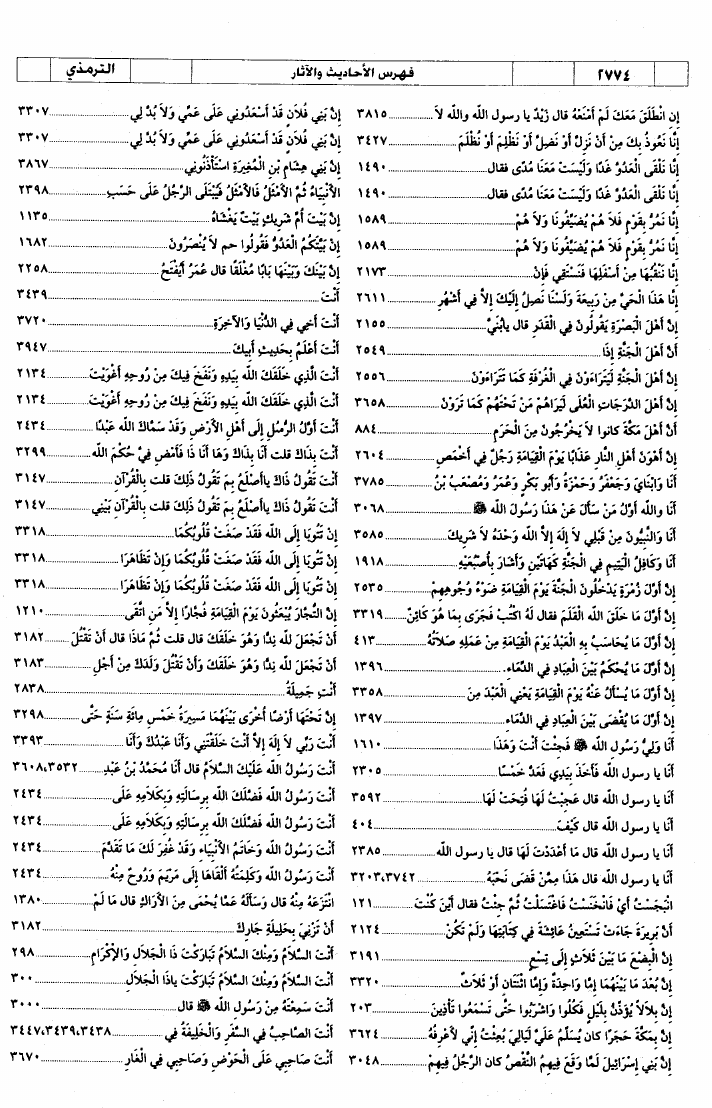 ٢٧٧٤
فهرس الأحاديث والآثار
الترمذي
إن انْطَلَقَ مَعَكَ لَمْ أَمْنَعْهُ قال زَيْدٌ يا رسول الله والله لاَ ٣٨١٥
إنَّا نَعُوذُ بِكَ مِنْ أَنْ نَزِلَّ أَوْ نَضِلَّ أَوْ نَظْلِمَ أَوْ نُظْلَمَ ٣٤٢٧
إنَّا نَلْقَى الْعَدُوَّ غَدًا وَلَيْسَتْ مَعَنَا مُدًى فقال ١٤٩٠
إنَّا نَلْقَى الْعَدُوَّ غَدًا وَلَيْسَتْ مَعَنَا مُدًى فقال ١٤٩٠
إنَّا نَمُرُّ بِقَوْمٍ فَلاَ هُمْ يُضَيِّفُونَا وَلاَ هُمْ ١٥٨٩
إنَّا نَمُرُّ بِقَوْمٍ فَلاَ هُمْ يُضَيِّفُونَا وَلاَ هُمْ ١٥٨٩
إنَّا نَنْقُبُهَا مِنْ أَسْفَلِهَا فَنَسْتَقِي فَإِنْ ٢١٧٣
إنَّا هَذَا الْحَيَّ مِنْ رَبِيعَةَ وَلَسْنَا نَصِلُ إِلَيْكَ إلاَّ في أَشْهُرِ ٢٦١١
إنَّ أَهْلَ الْبَصْرَةِ يَقُولُونَ فِي الْقَدَرِ قال يابُنَيَّ ٢١٥٥
أنَّ أَهْلَ الْجَنَّةِ إِذَا ٢٥٤٩
إنَّ أَهْلَ الْجَنَّةِ لَيَتَرَاءَوْنَ فِي الْغُرْفَةِ كَمَا تَتَرَاءَوْنَ ٢٥٥٦
إنَّ أَهْلَ الدَّرَجَاتِ الْعُلَى لَيَرَاهُمْ مَنْ تَحْتَهُمْ كَمَا تَرَوْنَ ٣٦٥٨
أنَّ أَهْلَ مَكَّةَ كَانوا لاَ يَخْرُجُونَ مِنَ الْحَرَمِ ٨٨٤
إنَّ أَهْوَنَ أَهْلِ النَّارِ عَذَابًا يَوْمَ الْقِيَامَةِ رَجُلٌ في أَخْمَصِ ٢٦٠٤
أنَا وَابْنَايَ وَجَعْفَرٌ وَحَمْزَةُ وَأَبُو بَكْرٍ وَعُمَرُ وَمُصْعَبُ بْنُ ٣٧٨٥
أنَا والله أَوَّلُ مَنْ سَأَلَ عَنْ هَذَا رَسُولَ الله ﷺ ٣٠٦٨
أنَا وَالنَّبِيُّونَ مِنْ قَبْلِي لاَ إِلَهَ إلاَّ الله وَحْدَهُ لاَ شَرِيكَ ٣٥٨٥
أنَا وَكَافِلُ الْيَتِيمِ فِي الْجَنَّةِ كَهَاتَيْنِ وَأَشَارَ بِأُصْبُعَيْهِ ١٩١٨
إنَّ أَوَّلَ زُمْرَةٍ يَدْخُلُونَ الْجَنَّةَ يَوْمَ الْقِيَامَةِ ضَوْءُ وُجُوهِهِمْ ٢٥٣٥
إنَّ أَوَّلَ مَا خَلَقَ الله الْقَلَمَ فقال لَهُ اكْتُبْ فَجَرَى بِمَا هُوَ كَائِنٌ ٣٣١٩
إنَّ أَوَّلَ مَا يُحَاسَبُ بِهِ الْعَبْدُ يَوْمَ الْقِيَامَةِ مِنْ عَمَلِهِ صَلاَتُهُ ٤١٣
إنَّ أَوَّلَ مَا يُحْكَمُ بَيْنَ الْعِبَادِ فِي الدِّمَاءِ ١٣٩٦
إنَّ أَوَّلَ مَا يُسْأَلُ عَنْهُ يَوْمَ الْقِيَامَةِ يَعْنِي الْعَبْدَ مِنَ ٣٣٥٨
إنَّ أَوَّلَ مَا يُقْضَى بَيْنَ الْعِبَادِ فِي الدِّمَاءِ ١٣٩٧
أنَا وَلِيُّ رَسُولِ الله ﷺ فَجِئْتَ أَنْتَ وَهَذَا ١٦١٠
أنَا يا رسول الله فَأَخَذَ بِيَدِي فَعَدَّ خَمْسًا ٢٣٠٥
أنَا يا رسول الله قال عَجِبْتُ لَهَا فُتِحَتْ لَهَا ٣٥٩٢
أنَا يا رسول الله قال كَيْفَ ٤٠٤
أنَا يا رسول الله قال مَا أَعْدَدْتَ لَهَا قال يا رسول الله ٢٣٨٥
أنَا يا رسول الله قال هَذَا مِمَّنْ قَضَى نَحْبَهُ ٣٢٠٣،٣٧٤٢
انْبَجَسْتُ أَيْ فَانْخَنَسْتُ فَاغْتَسَلْتُ ثُمَّ جِئْتُ فقال أَيْنَ كُنْتَ ١٢١
أنَّ بَرِيرَةَ جَاءَتْ تَسْتَعِينُ عَائِشَةَ في كِتَابَتِهَا وَلَمْ تَكُنْ ٢١٢٤
إنَّ الْبِضْعَ مَا بَيْنَ ثَلاَثٍ إِلَى تِسْعٍ ٣١٩١
إنَّ بُعْدَ مَا بَيْنَهُمَا إِمَّا وَاحِدَةٌ وَإِمَّا اثْنَتَانِ أَوْ ثَلاَثٌ ٣٣٢٠
إنَّ بِلاَلاً يُؤَذِّنُ بِلَيْلٍ فَكُلُوا وَاشْرَبُوا حَتَّى تَسْمَعُوا تَأْذِينَ ٢٠٣
إنَّ بِمَكَّةَ حَجَرًا كان يُسَلِّمُ عَلَيَّ لَيَالِيَ بُعِثْتُ إِنِّي لأَعْرِفُهُ ٣٦٢٤
إنَّ بَنِي إِسْرَائِيلَ لَمَّا وَقَعَ فِيهِمُ النَّقْصُ كان الرَّجُلُ فِيهِمْ ٣٠٤٨
إنَّ بَنِي فُلاَنٍ قَدْ أَسْعَدُونِي عَلَى عَمِّي وَلاَ بُدَّ لِي ٣٣٠٧
إنَّ بَنِي فُلاَنٍ قَدْ أَسْعَدُونِي عَلَى عَمِّي وَلاَ بُدَّ لِي ٣٣٠٧
إنَّ بَنِي هِشَامِ بْنِ الْمُغِيرَةِ اسْتَأْذَنُونِي ٣٨٦٧
الأَنْبِيَاءُ ثُمَّ الأَمْثَلُ فَالأَمْثَلُ فَيُبْتَلَى الرَّجُلُ عَلَى حَسَبِ ٢٣٩٨
إنَّ بَيْتَ أُمِّ شَرِيكٍ بَيْتٌ يَغْشَاهُ ١١٣٥
إنْ بَيَّتَكُمُ الْعَدُوُّ فَقُولُوا حم لاَ يُنْصَرُونَ ١٦٨٢
إنَّ بَيْنَكَ وَبَيْنَهَا بَابًا مُغْلَقًا قال عُمَرُ أَيُفْتَحُ ٢٢٥٨
أنْتَ ٣٤٣٩
أنْتَ أَخِي فِي الدُّنْيَا وَالآخِرَةِ ٣٧٢٠
أنْتَ أَعْلَمُ بِحَدِيثِ أَبِيكَ ٣٩٤٧
أنْتَ الَّذِي خَلَقَكَ الله بِيَدِهِ وَنَفَخَ فِيكَ مِنْ رُوحِهِ أَغْوَيْتَ ٢١٣٤
أنْتَ الَّذِي خَلَقَكَ الله بِيَدِهِ وَنَفَخَ فِيكَ مِنْ رُوحِهِ أَغْوَيْتَ ٢١٣٤
أنْتَ أَوَّلُ الرُّسُلِ إِلَى أَهْلِ الأَرْضِ وَقَدْ سَمَّاكَ الله عَبْدًا ٢٤٣٤
أنْتَ بِذَاكَ قلت أَنَا بِذَاكَ وَهَا أَنَا ذَا فَأَمْضِ فِيَّ حُكْمَ الله ٣٢٩٩
أنْتَ تَقُولُ ذَاكَ ياأَصْلَعُ بِمَ تَقُولُ ذَلِكَ قلت بِالْقُرْآنِ ٣١٤٧
أنْتَ تَقُولُ ذَاكَ ياأَصْلَعُ بِمَ تَقُولُ ذَلِكَ قلت بِالْقُرْآنِ بَيْنِي ٣١٤٧
إنْ تَتُوبَا إِلَى الله فَقَدْ صَغَتْ قُلُوبُكُمَا ٣٣١٨
إنْ تَتُوبَا إِلَى الله فَقَدْ صَغَتْ قُلُوبُكُمَا وَإِنْ تَظَاهَرَا ٣٣١٨
إنْ تَتُوبَا إِلَى الله فَقَدْ صَغَتْ قُلُوبُكُمَا وَإِنْ تَظَاهَرَا ٣٣١٨
إنَّ التُّجَّارَ يُبْعَثُونَ يَوْمَ الْقِيَامَةِ فُجَّارًا إلاَّ مَنِ اتَّقَى ١٢١٠
أنْ تَجْعَلَ للَّه نِدًّا وَهُوَ خَلَقَكَ قال قلت ثُمَّ مَاذَا قال أَنْ تَقْتُلَ ٣١٨٢
أنْ تَجْعَلَ للَّه نِدًّا وَهُوَ خَلَقَكَ وَأَنْ تَقْتُلَ وَلَدَكَ مِنْ أَجْلِ ٣١٨٣
أنْتِ جَمِيلَةُ ٢٨٣٨
إنَّ تَحْتَهَا أَرْضًا أُخْرَى بَيْنَهُمَا مَسِيرَةُ خَمْسِ مِائَةِ سَنَةٍ حَتَّى ٣٢٩٨
أنْتَ رَبِّي لاَ إِلَهَ إلاَّ أنْتَ خَلَقْتَنِي وَأَنَا عَبْدُكَ وَأَنَا ٣٣٩٣
أنْتَ رَسُولُ الله عَلَيْكَ السَّلاَمُ قال أَنَا مُحَمَّدُ بْنُ عَبْدِ ٣٦٠٨،٣٥٣٢
أنْتَ رَسُولُ الله فَضَّلَكَ الله بِرِسَالَتِهِ وَبِكَلاَمِهِ عَلَى ٢٤٣٤
أنْتَ رَسُولُ الله فَضَّلَكَ الله بِرِسَالَتِهِ وَبِكَلاَمِهِ عَلَى ٢٤٣٤
أنْتَ رَسُولُ الله وَخَاتَمُ الأَنْبِيَاءِ وَقَدْ غُفِرَ لَكَ مَا تَقَدَّمَ ٢٤٣٤
أنْتَ رَسُولُ الله وَكَلِمَتُهُ أَلْقَاهَا إِلَى مَرْيَمَ وَرُوحٌ مِنْهُ ٢٤٣٤
انْتَزَعَهُ مِنْهُ قال وَسَأَلَهُ عَمَّا يُحْمَى مِنَ الأَرَاكِ قال مَا لَمْ ١٣٨٠
أنْ تَزْنِيَ بِحَلِيلَةِ جَارِكَ ٣١٨٢
أنْتَ السَّلاَمُ وَمِنْكَ السَّلاَمُ تَبَارَكْتَ ذَا الْجَلاَلِ وَالإِكْرَامِ ٢٩٨
أنْتَ السَّلاَمُ وَمِنْكَ السَّلاَمُ تَبَارَكْتَ ياذَا الْجَلاَلِ ٣٠٠
أنْتَ سَمِعْتَهُ مِنْ رَسُولِ الله ﷺ قال ٣٠٠٠
أنْتَ الصَّاحِبُ فِي السَّفَرِ وَالْخَلِيفَةُ فِي ٣٤٤٧،٣٤٣٩،٣٤٣٨
أنْتَ صَاحِبِي عَلَى الْحَوْضِ وَصَاحِبِي فِي الْغَارِ ٣٦٧٠